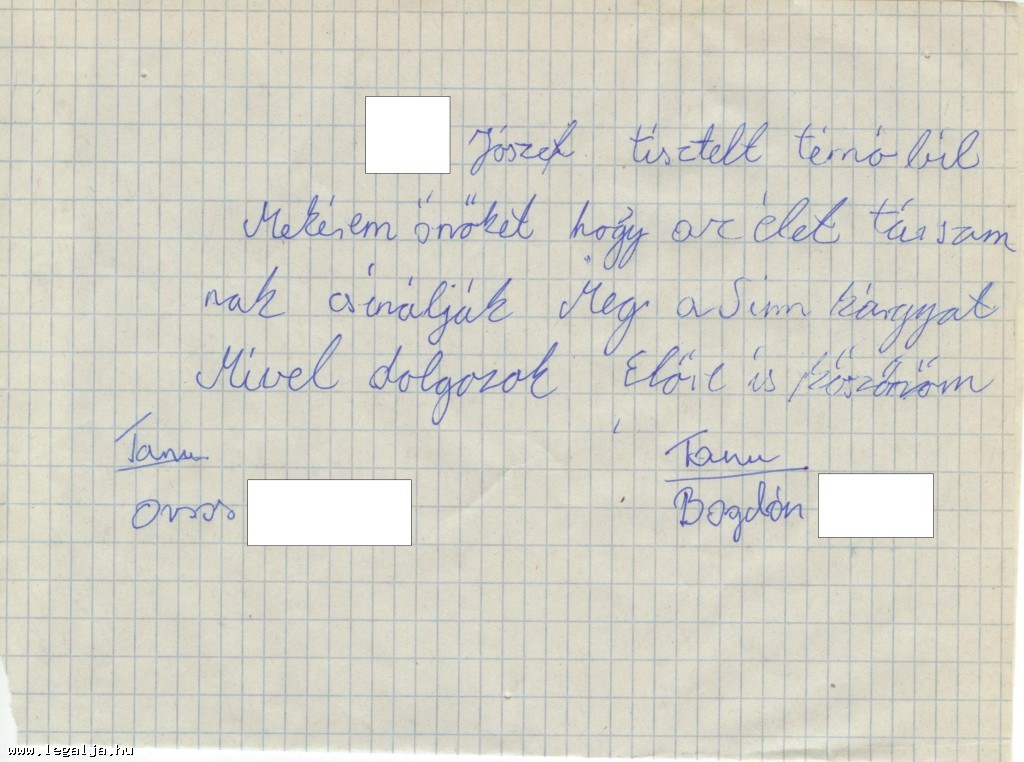 József tisztelt térnó bil
Mekérem önöket hogy az élet társam
nak csinálják Meg a Simm kárgyat
Mivel dolgozok Előre is köszönöm
Tanu Tanu
Orsos Bogdán
www.legalja.hu